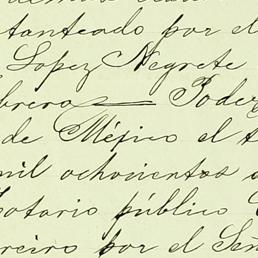 stanteado por el
Lopez Negrete
brero — Poder
de Méjico el t
mil ochocientos
notario público
rreiro por el Señ